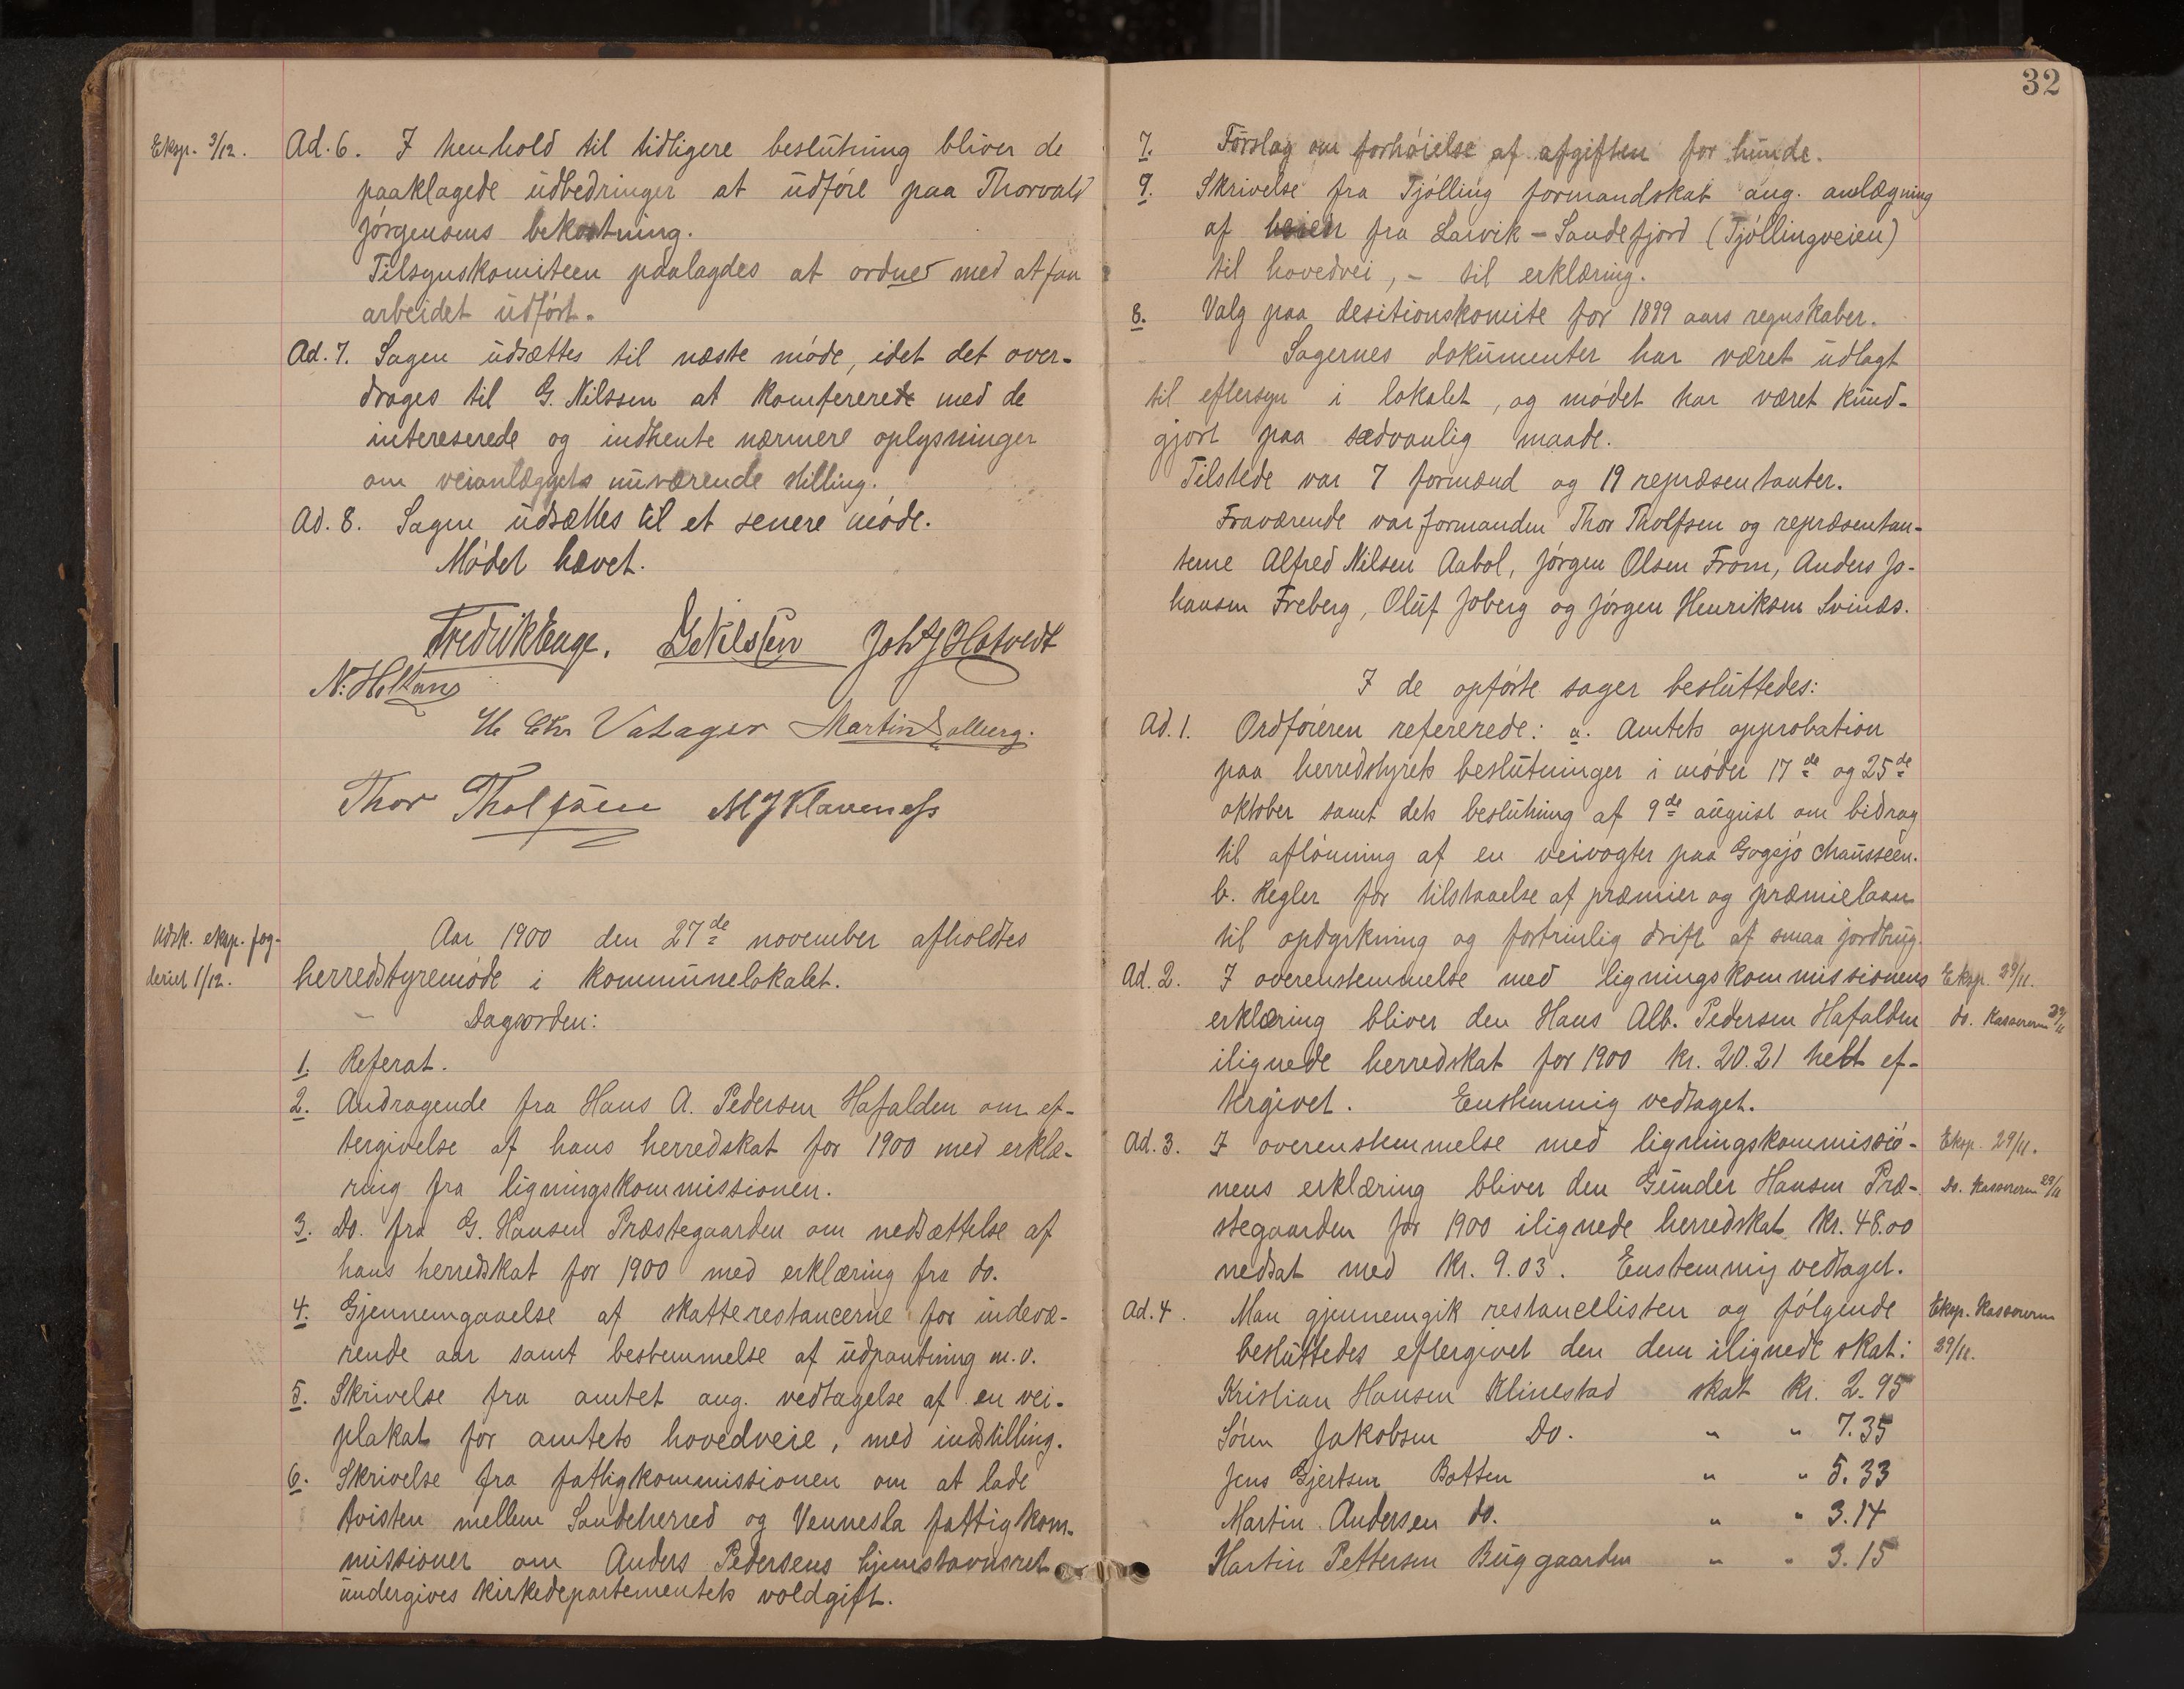 Eksp. 3/12.
Ad. 6. I henhold til tidligere beslutning bliver de
paaklagede udbedringer at udføre paa Thorvald
Jørgensens bekostning.
Tilsynskomiteen paalagdes at ordnes med at faa
arbeidet udført.
Ad. 7. Sagen udsættes til næste møde, idet det over-
drages til G. Nilssen at konfererede med de
intereserede og indhente nærmere oplysninger
om veianlæggets nuværende stilling.
Ad. 8. Sagen udsættes til et senere møde.
Mødet hævet.
Fredrik Enge. G Nilssen Joh J Hotvedt
N. Heltans
H Chr Vatager Martin Dalberg.
Thor Tholfsen M J Klaveness
Udsk. eksp. fog-
deriet 1/12.
Aar 1900 den 27de november afholdtes
herredstyremøde i kommunelokalet.
Dagsorden:
1. Referat.
2. Andragende fra Hans A. Pedersen Hafalden om ef-
tergivelse af hans herredskat for 1900 med erklæ-
ring fra ligningskommissionen.
3. Do. fra G. Hansen Præstegaarden om nedsættelse af
hans herredskat for 1900 med erklæring fra do.
4. Gjennemgaaelse af skatterestancerne for indevæ-
rende aar samt bestemmelse af udpantning m.v.
5. Skrivelse fra amtet ang. vedtagelse af en vei-
plakat for amtets hovedveie, med indstilling.
6. Skrivelse fra fattigkommissionen om at lade
tvisten mellem Sandeherred og Vennesla fattigkom-
missioner om Anders Pedersens hjemstavnsret
undergives kirkedepartementets voldgift.
32
7. Forslag om forhøielse af afgiften for hunde.
9. Skrivelse fra Tjølling formandskab ang. anlægning
af veien fra Larvik - Sandefjord (Tjøllingveien)
til hovedvei, - til erklæring.
8. Valg paa desitionskomite for 1899 aars regnskaber.
Sagernes dokumenter har været udlagt
til eftersyn i lokalet, og mødet har været kund-
gjort paa sædvanlig maade.
Tilstede var 7 formænd og 19 repræsentanter.
Fraværende var formanden Thor Tholfsen og repræsentan-
terne Alfred Nilsen Aabol, Jørgen Olsen From, Anders Jo-
hansen Freberg, Oluf Joberg og Jørgen Henriksen Svinæs.
I de opførte sager besluttedes:
Ad. 1. Ordføreren refererede: a. Amtets approbation
paa herredstyrets beslutninger i møder 17de og 25de
oktober samt dets beslutning af 9de august om bidrag
til aflønning af en veivogter paa Gogsjø chausseen.
b. Regler for tilstaaelse af præmier og præmielaan
til opdyrkning og fortrinlig drift af smaa jordbrug.
Ad. 2. I overenstemmelse med ligningskommissionens Eksp. 29/11.
erklæring bliver den Hans Alb. Pedersen Hafalden do. kassereren 29/11
ilignede herredskat for 1900 kr. 20.21 helt ef-
tergivet. Enstemmig vedtaget.
Ad. 3. I overenstemmelse med ligningskommissio- Eksp. 29/11.
nens erklæring bliver den Gunder Hansen Præ- do. kassereren 29/11
stegaarden for 1900 ilignede herredskat kr. 48.00
nedsat med kr. 9.03. Enstemmig vedtaget.
Ad. 4. Man gjennemgik restancelisten og følgende Eksp. kassereren
besluttedes eftergivet den dem ilignede skat: 29/11.
Kristian Hansen Klinestad skat kr. 2.95
Søren Jakobsen Do. " " 7.35
Jens Gjertsen Botten " " 5.33
Martin Andersen do. " " 3.14
Martin Pettersen Buggaarden " " 3.15